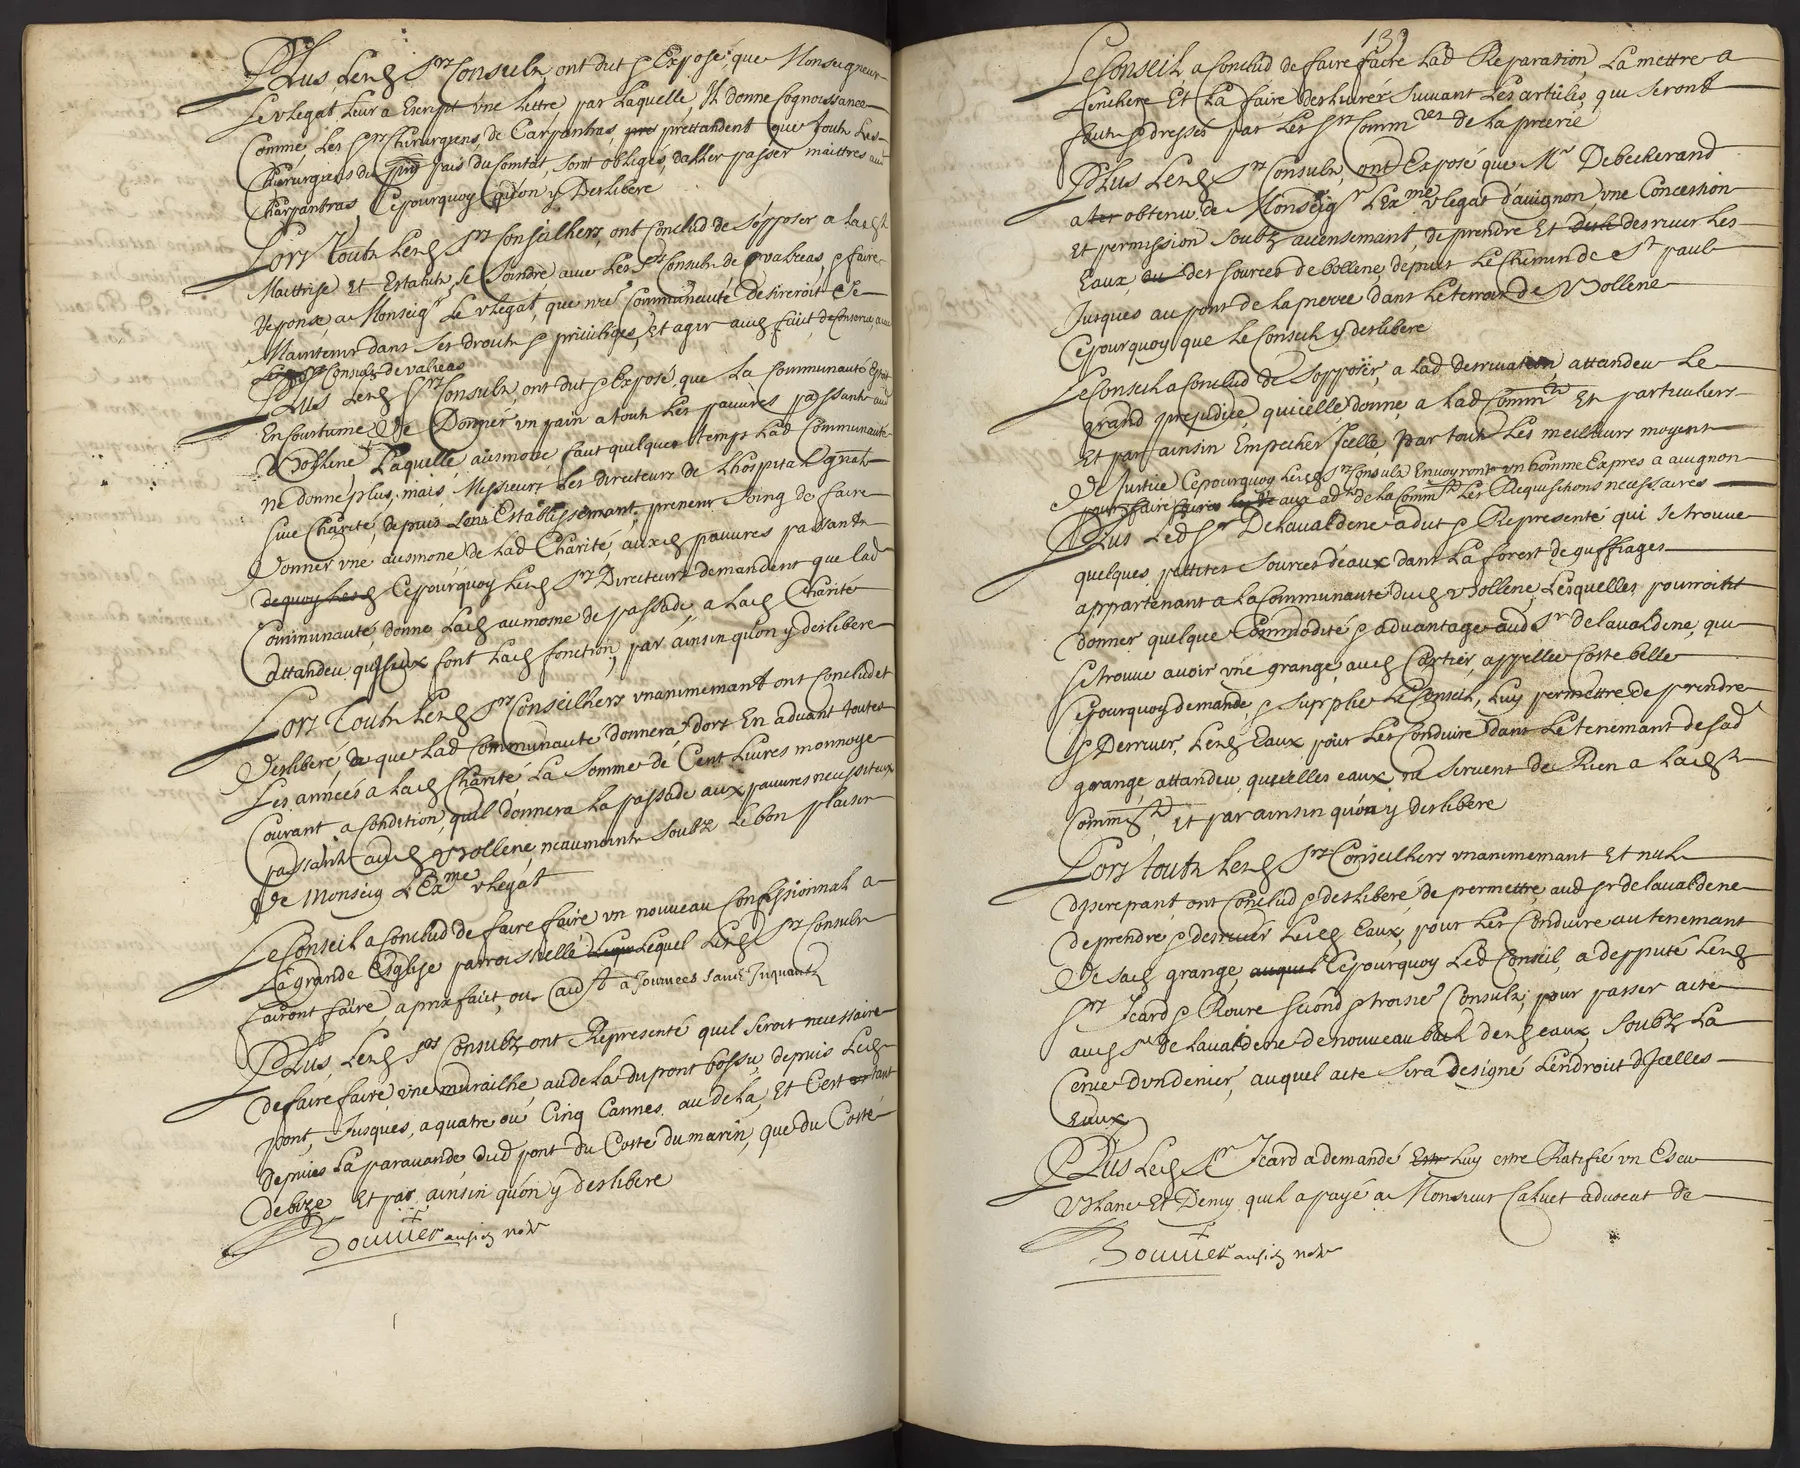 Plus, Lesd Srs Consulz ont dit & Exposé, que Monseigneur
Le vlegat, Leur a Escript vne Lettre par Laquelle, Il donne Cognoissance
Comme Les Srs Chirurgiens, de Carpantras, pre prettandent que touts Les
Chirurgiens du pnt pais du Comtat, sont obligés, daller passer maittres aud
Carpantras, Cepourquoy quon y Desliberé
Lors Touts Lesd Srs Conseilhers, ont Conclud de Sopposer a Lad
Maittrise Et Estatuts, se Joindre, auec Les Srs Consulz de valreas, & faire
Response, a Monseigr Le vlegat, que nre Communauté desireroit Se
Maintenir dans Ses droits & priuileges, Et agir aud faict de Consert, auec
Lesd Srs Consulz de valreas
Plus Lesd Srs Consulz, ont dit & Exposé, que La Communauté Estoit
En Coustume, De Donner vn pain a touts Les pauures passants aud
Bollene, Laquelle ausmone, faut quelques temps Lad Communauté
ne donne plus, mais Messieurs Les directeurs de Lhospital gnal
siue Charité, depuis Leur Establissemant, prenent Soing de faire
Donner vne ausmone de Lad Charité, auxd pauures passants
de quoy Lesd Cepourquoy Lesd Srs Directeurs demandent que Lad
Communauté, donne Lad aumosne de passade, a Lad Charité
attandeu quiceux font Lad fonction, par ainsin quon y deslibere
Lors Touts Lesd Srs Conseilhers vnanimemant ont Conclud et
Desliberé de que Lad Communauté donnera dors En aduant toutes
Les années a Lad Charité La Somme de Cent Liures monnoye
Courant, a Condition, quil donnera La passade aux pauures necessiteux
passants aud Bollene, neaumoints Soubz Le bon plaisir
De Monseig LExme vlegat
Le Conseil a Conclud de faire faire vn nouueau Confessionnal a
La grande Esglise parroissielle Lequel Lequel Lesd Srs Consulz
fairont faire, a prix faict, ou a Journees sans Inquants
Plus, Lesd Srs Consulz ont Representé quil seroit necessaire
de faire faire vne murailhe, au dela du pont bossu, depuis Led
pont, Jusques, a quatre ou Cinq Cannes au dela, Et Cest tant
depuis La parauande dud pont du Costé du marin, que du Costé
de bize Et par ainsin quon y deslibere
Bouuier ansien nore
139
Le Conseil a Conclud de faire faire Lad Reparation, La mettre a
Lenchere Et La faire desliurer Suiuant Les articles, qui seront
faits & dressés par Les Srs Commres de La pnerie
Plus Lesd Srs Consulz, ont Exposé que Mr Debecherand
a ter obtenu de Monseigr LExme vlegat dauignon vne Concession
Et permission soubz accensemant, de prendre Et desriuer Les
Eaux des sources de bollene, depuis Le Chemin de St paul
Jusques au pont de La pierre dans Le terroir de Bollene
Cepourquoy que Le Conseil y deslibere
Le Conseil a Conclud de Sopposer, a Lad deriuation attandeu Le
grand prejudice, quicelle donne, a Lad Commté Et particuliers
Et par ainsin Empecher Icelle, par touts Les meilleurs moyens
De Justice Cepourquoy Lesd Srs Consulz Enuoyront vn homme Expres a auignon
pour faire faire aux adts de La Commté Les Requisitions necessaires
Plus Led Sr De Laualdene a dit & Representé qui se trouue
quelques, petittes Sources deaux dans La forest de guffiages
appartenant a La Communauté dud Bollene, Lesquelles pourroint
donner quelque Commodité & aduantage aud Sr de Laualdene, qui
se trouue auoir vne grange, aud Cartier, appellée Costebelle
Cepourquoy demande, & supplie Le Conseil, Luy permettre de prendre
& Derriuer, Lesd Eaux pour Les Conduire dans Le tenemant de sad
grange, attandeu, quicelles eaux ne seruent de Rien a Lad
Commté Et par ainsin quon y deslibere
Lors touts Lesd Srs Conseilhers vnanimemant Et nul
discrepant, ont Conclud & desliberé, de permettre, aud Sr de Laualdene
de prendre & desriuer Lesd Eaux, pour Les Conduire au tenemant
De sad grange, auquel Cepourquoy Led Conseil, a desputé Lesd
Srs Icard & Roure second & troisie Consulz, pour passer acte
aud Sr de Laualdene de nouueau bail desd eaux, Soubz La
Cense dvn denier, auquel acte Sera designé Lendroict dIcelles
Eaux
Plus Led Sr Icard a demandé Estr Luy estre Ratifié vn Escu
Blanc Et Demy quil a payé a Monsieur Caluet aduocat de
Bouuier ansien nore